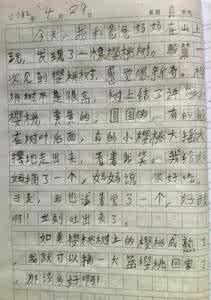 2012年4月29日 星期日
今天,我和爸爸妈妈在山上
玩,发现了一棵樱桃树。我第一
次见到樱桃树,感觉很新奇。樱
桃树不是很高,树上结了许
樱桃,黄黄的,圆圆的,有的
在树叶后面,有的小樱桃大摇大
摆地走出来,看着
妈摘了一个,妈妈说,很好吃,
于是,我也试着尝了一个,好
啊!立刻吐出来了。
如果樱桃树上的樱桃成熟了
我就可以摘一大篮樱桃回家了
那该多好啊!